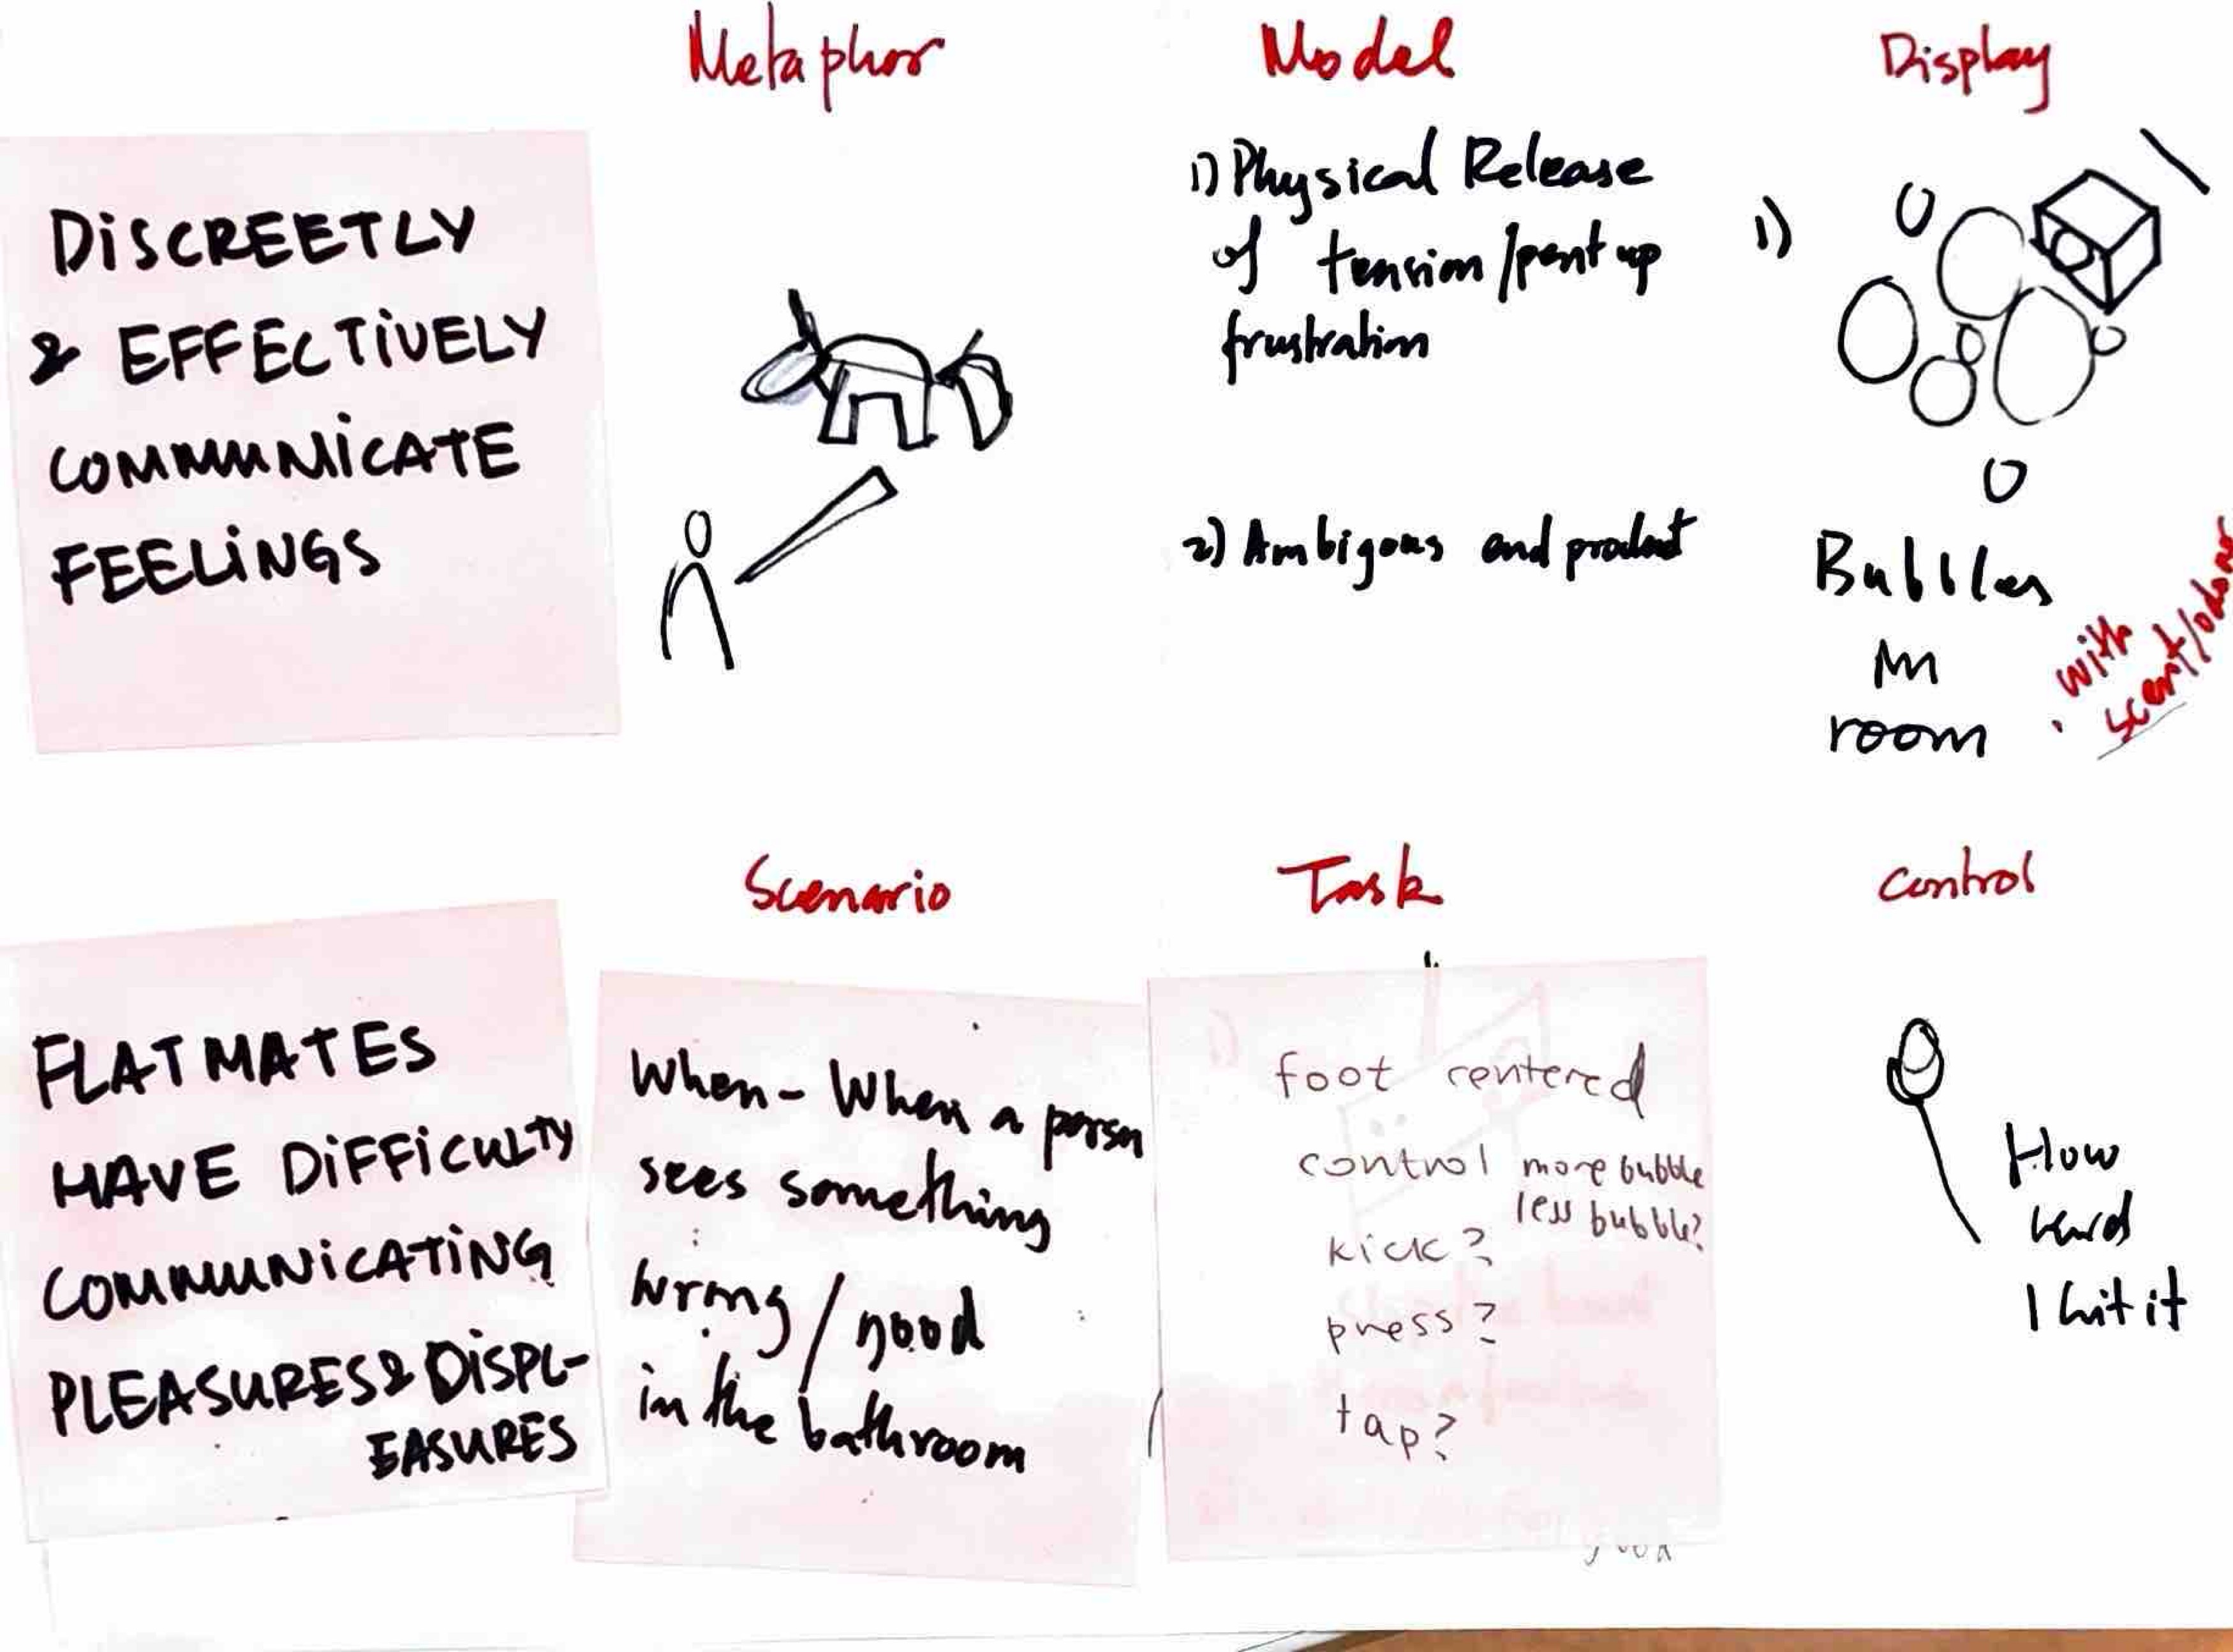 Metaphor
Model
Display
DiSCREETLY
& EFFECTiVELY
COMMUNiCATE
FEELiNGS
1) Physical Release
of tension/pent up
frustration
2) Ambigous and product
1)
Bubbles
in
room
. with
scent/odor
Scenario
Task
Control
FLATMATES
HAVE DiFFiCULTY
COMMUNiCATiNG
PLEASURES & DiSPL-
EASURES
When - When a person
sees something
wrong / good
in the bathroom
foot centered
control more bubble
less bubble?
kick?
press?
tap?
How
hard
I hit it